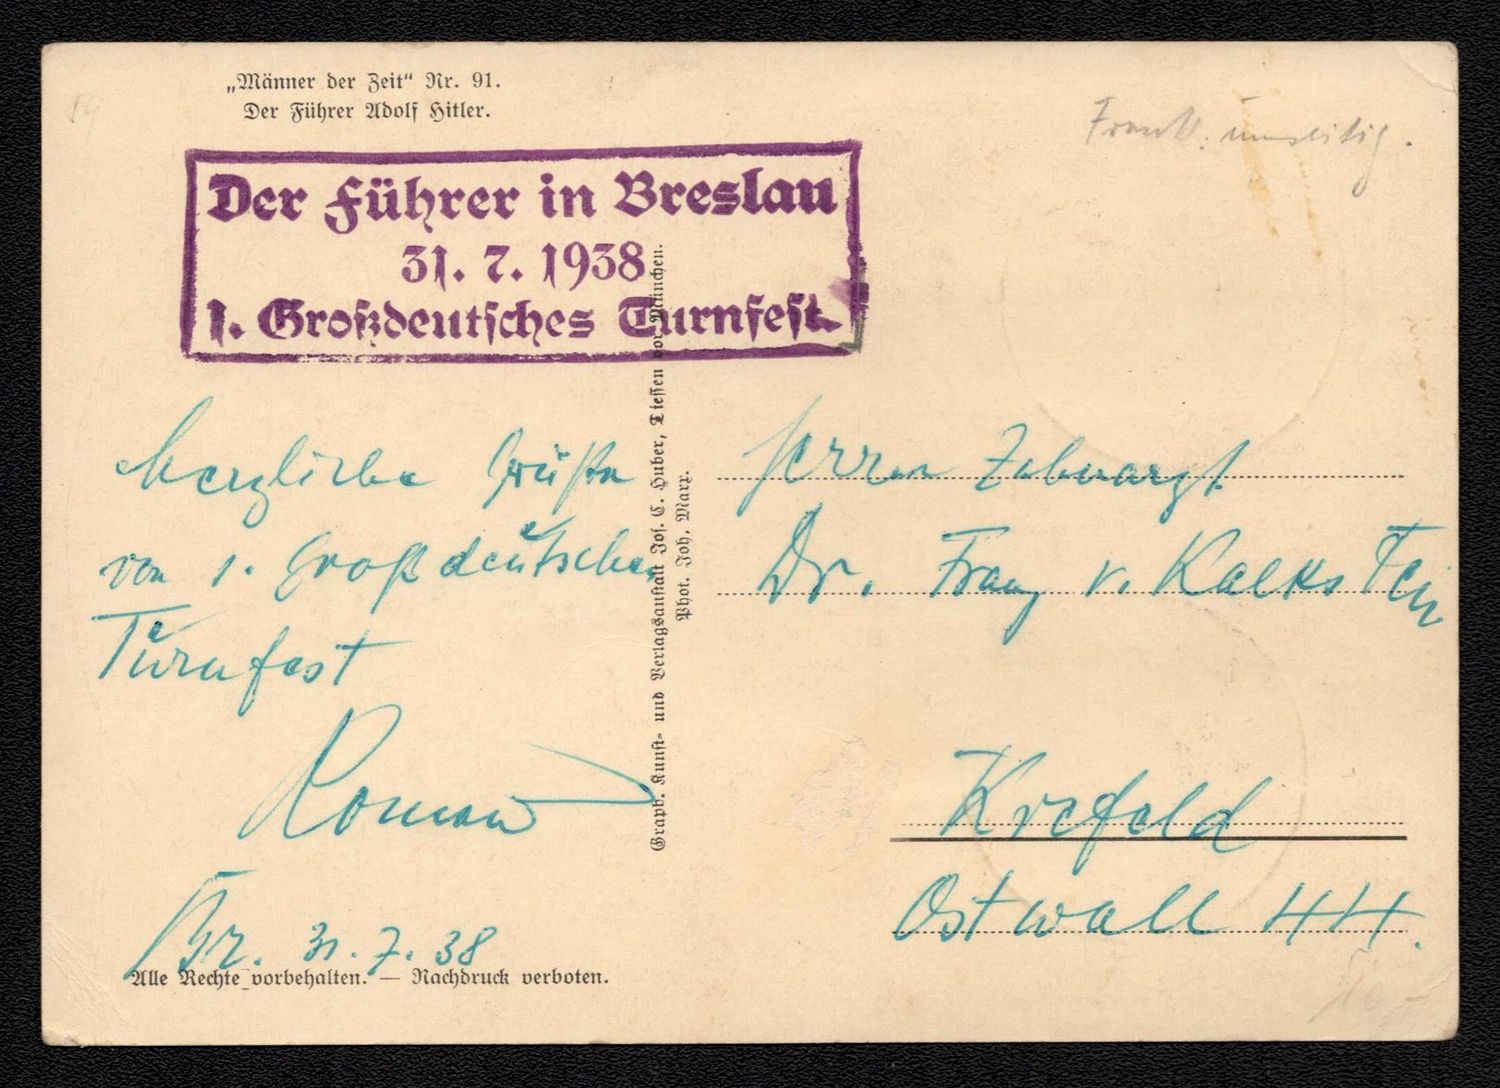 „Männer der Zeit“ Nr. 91.
Der Führer Adolf Hitler.
Frank. umseitig.
Der Führer in Breslau
31. 7. 1938
1. Großdeutsches Turnfest.
Herzliche Grüße
von 1. Großdeutschen
Turnfest
Roman
Br. 31. 7. 38
Alle Rechte vorbehalten. — Nachdruck verboten.
Graph. Kunst- und Verlagsanstalt Jos. C. Huber, Diessen vor München.
Phot. Joh. Marx.
Herrn Zahnarzt
Dr. Franz v. Kalkstein
Krefeld
Ostwall 44.